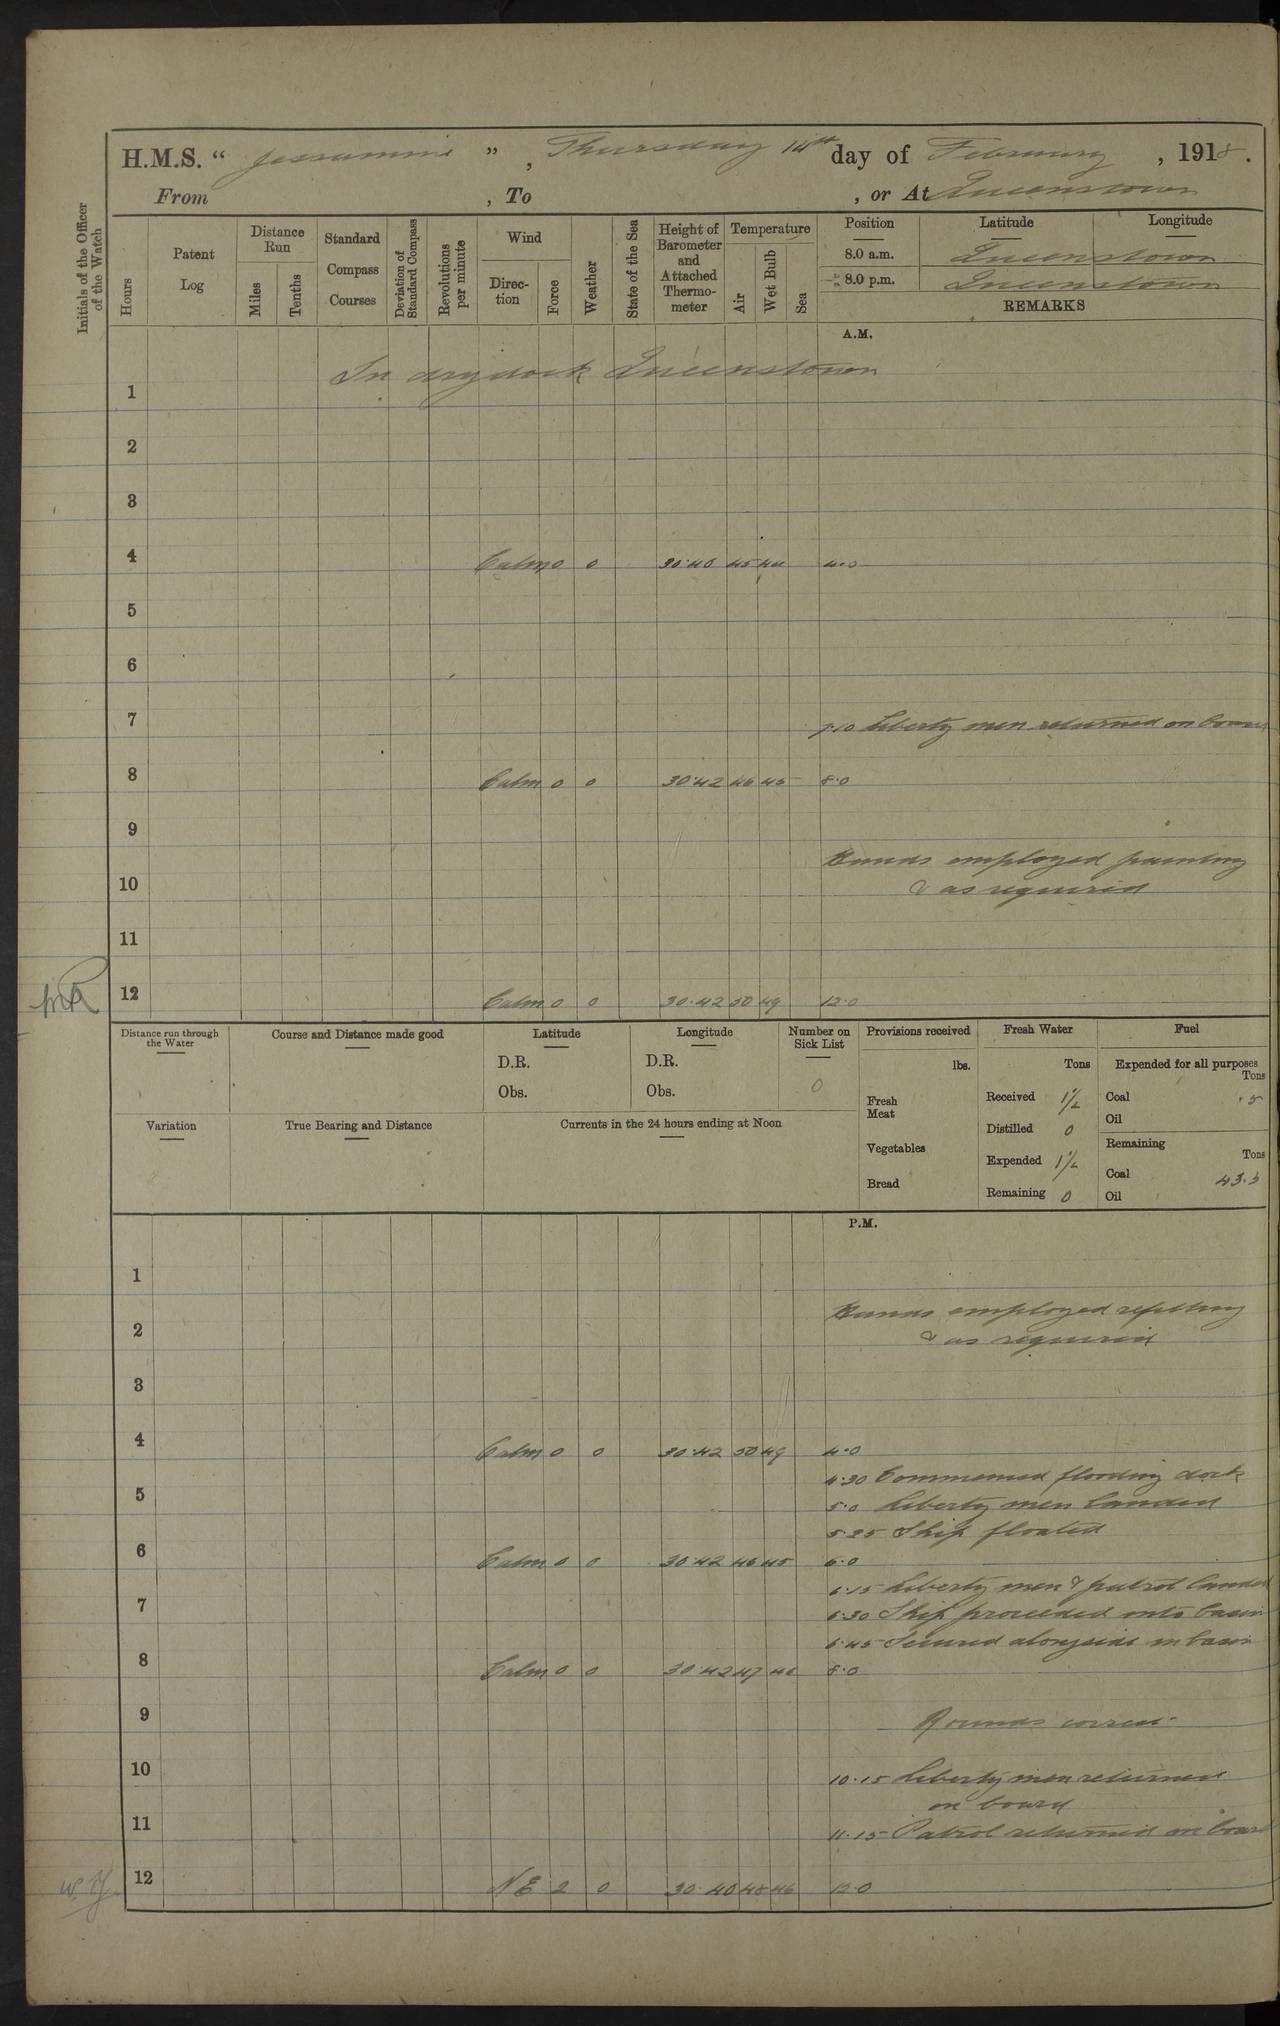 H.M.S. “ Jessamine ”, Thursday 14th day of February, 1918.
From , To , or At Queenstown
Initials of the Officer of the Watch
Hours
Patent Log
Distance Run
Miles
Tenths
Standard Compass Courses
Deviation of Standard Compass
Revolutions per minute
Wind
Direction
Force
Weather
State of the Sea
Height of Barometer and Attached Thermometer
Temperature
Air
Wet Bulb
Sea
Position Latitude Longitude
8.0 a.m. Queenstown
8.0 p.m. Queenstown
REMARKS
A.M.
In dry dock Queenstown
1
2
3
4 Calm 0 0 30.40 45 44 4.0
5
6
7 7.10 Liberty men returned on board
8 Calm 0 0 30.42 46 45 8.0
9
Hands employed painting
10 & as required
11
12 Calm 0 0 30.42 50 49 12.0
Distance run through the Water
Course and Distance made good
Latitude
D.R.
Obs.
Longitude
D.R.
Obs.
Number on Sick List
0
Provisions received
lbs.
Fresh Meat
Vegetables
Bread
Fresh Water
Tons
Received 1½
Distilled 0
Expended 1½
Remaining 0
Fuel
Expended for all purposes
Tons
Coal .5
Oil
Remaining
Tons
Coal 43.5
Oil
Variation
True Bearing and Distance
Currents in the 24 hours ending at Noon
P.M.
1
Hands employed refitting
2 & as required
3
4 Calm 0 0 30.42 50 49 4.0
4.30 Commenced flooding dock
5 5.0 Liberty men landed
5.25 Ship floated
6 Calm 0 0 30.42 46 45 6.0
6.15 Liberty men & patrol landed
7 6.30 Ship proceeded into basin
6.45 Secured alongside in basin
8 Calm 0 0 30.42 47 46 8.0
9 Rounds correct
10 10.15 Liberty men returned
on board
11 11.15 Patrol returned on board
12 NE 2 0 30.40 48 46 12.0